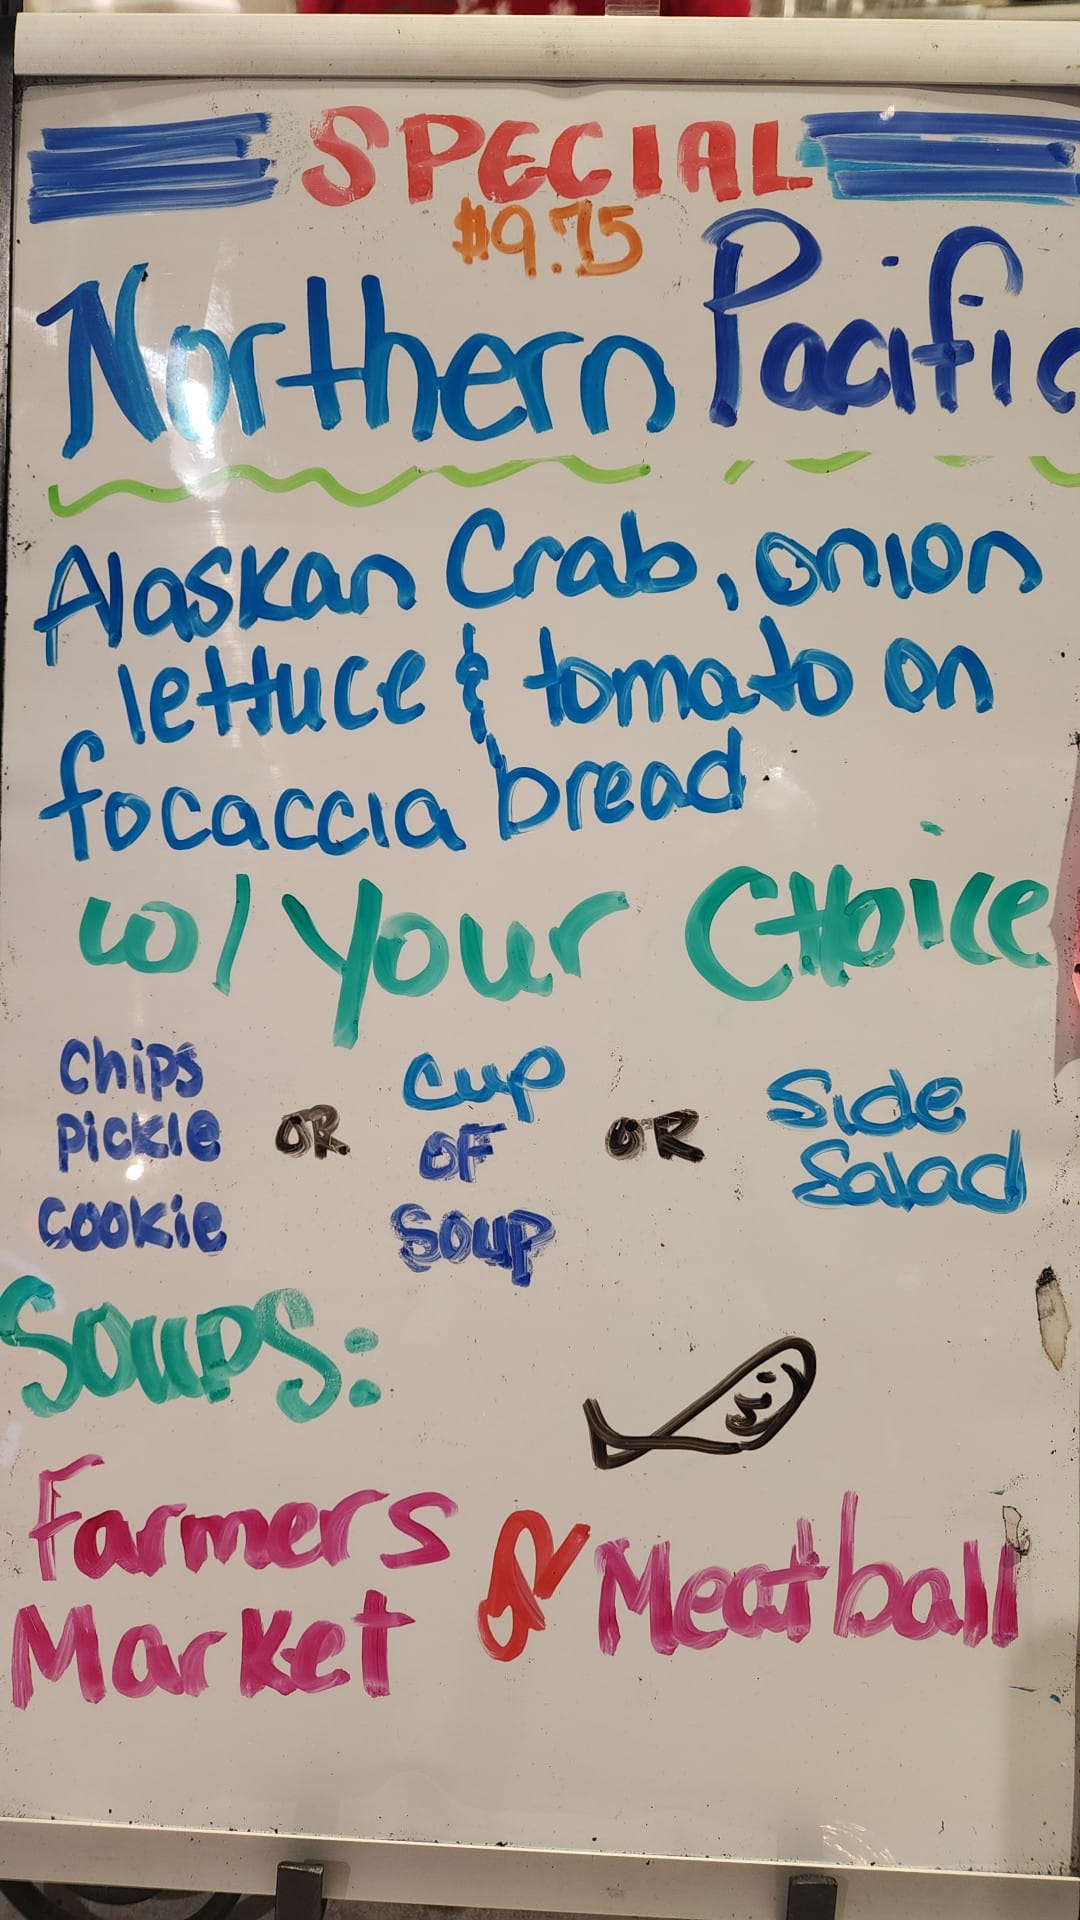 SPECIAL
$9.75
Northern Pacific
Alaskan Crab, onion
lettuce & tomato on
focaccia bread
w/ Your Choice
Chips
Pickle
Cookie
OR
Cup
OF
Soup
OR
Side
Salad
Soups:
Farmers
Market
or Meatball